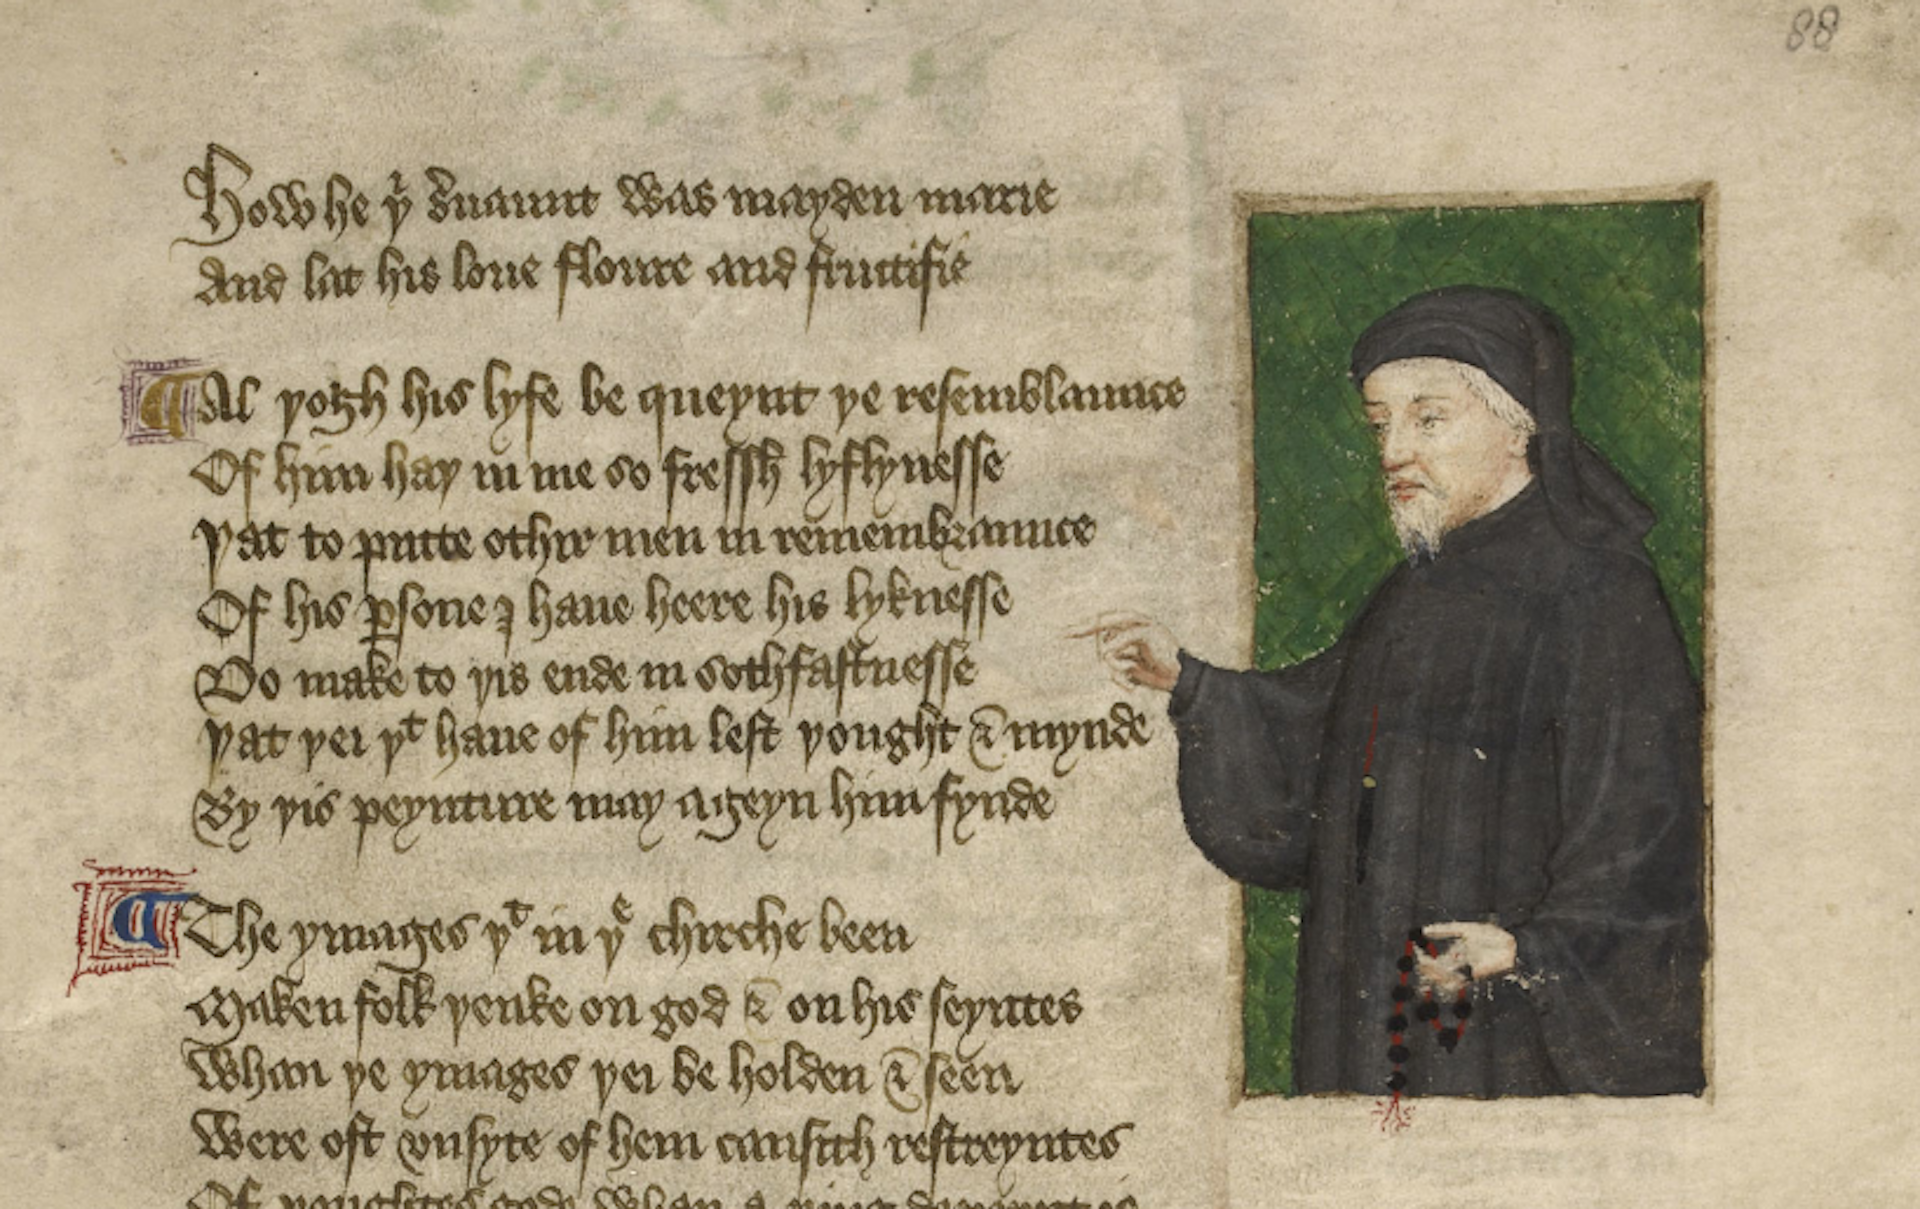 88
How he þⁱ ẜuaunt was mayden marie
And lat his loue floure and fructifie
Al þogh his lyfe be queynt þe resemblaunce
Of him haþ in me so fressh lyflynesse
Þat to putte othir men in remembraunce
Of his ꝑsone I haue heere his lyknesse
Do make to þis ende in sothfastnesse
Þat þei þᵗ haue of him left þought & mynde
By þis peynture may ageyn him fynde
The ymages þᵗ in þᵉ chirche been
Maken folk þenke on god & on his seyntes
Whan þe ymages þei be holden & seen
Were oft vnsyte of hem causith restreyntes
Of þoughtes gode whan a þing depeynt is